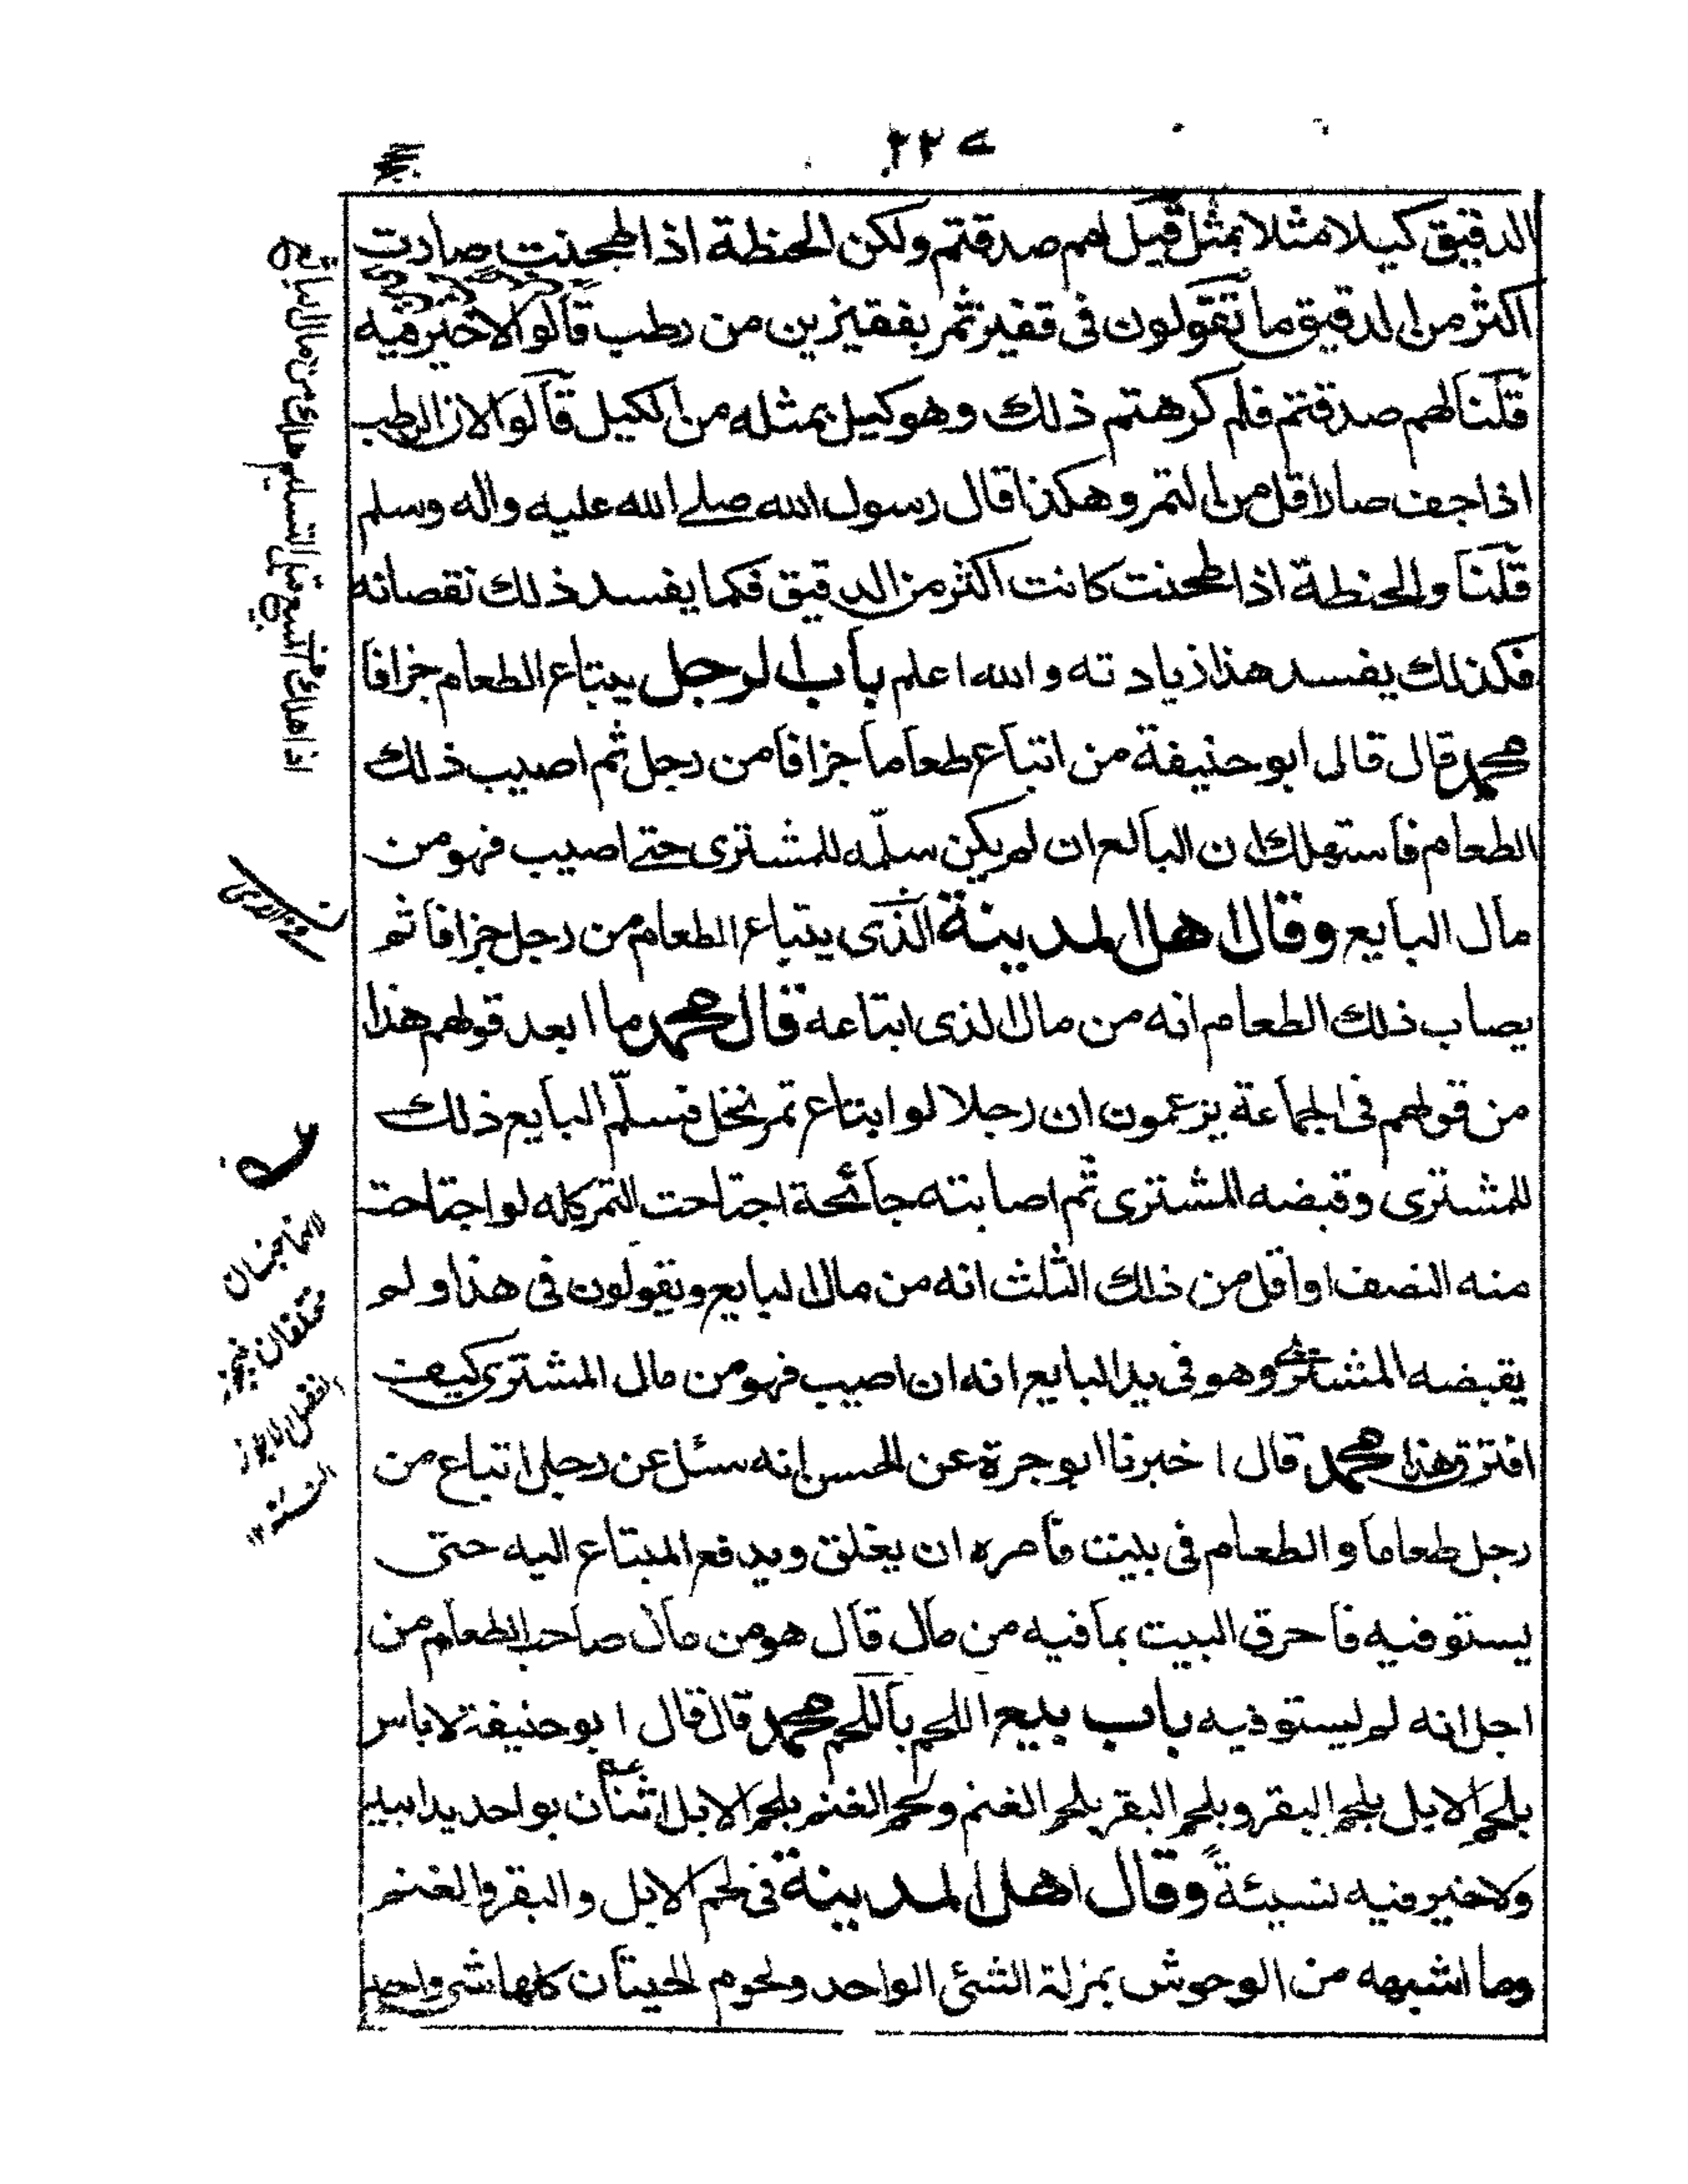 ٢٢٥
الدقيق كيلا مثلا بمثل قيل لهم صدقتم ولكن الحنظة اذا طحنت صارت
اكثر من الدقيق ما تقولون فى قفيز تمر بفقيزين من رطب قالوا لا خير فيه
قلنا لهم صدقتم فلم كرهتم ذلك وهو كيل بمثله من الكيل قالوا لان الرطب
اذا جف صار اقل من التمر وهكذا قال رسول الله صلے الله عليه واله وسلم
قلنا والحنطة اذا طحنت كانت اكثر من الدقيق فكما يفسد ذلك نقصانه
فكذلك يفسد هذا زيادته والله اعلم باب الرجل يبتاع الطعام جزافا
محمد قال قال ابو حنيفة من ابتاع طعاما جزافا من رجل ثم اصيب ذلك
الطعام فاستهلك ان البائع ان لم يكن سلّمه للمشترى حتے اصيب فهو من
مال البايع وقال اهل المدينة الذى يبتاع الطعام من رجل جزافا ثم
يصاب ذلك الطعام انه من مال الذى ابتاعه قال محمد ما ابعد قولهم هذا
من قولهم فى الجماعة يزعمون ان رجلا لو ابتاع تمر نخل فسلّم البايع ذلك
للمشترى وقبضه المشترى ثم اصابته جائحة اجتاحت التمر كله لو اجتاحت
منه النصف او اقل من ذلك الثلث انه من مال البايع ويقولون فى هذا ولم
يقبضه المشترى وهو فى يد البايع انه ان اصيب فهو من مال المشترى كيف
افترق هذا محمد قال اخبرنا ابو جرة عن الحسن انه سئل عن رجل ابتاع من
رجل طعاما والطعام فى بيت فامره ان يغلق ويدفع المبتاع اليه حتى
يستوفيه فاحرق البيت بما فيه من مال قال هو من مال صاحب الطعام من
اجل انه لم يستوفيه باب بيع اللحم باللحم محمد قال قال ابو حنيفة لا باس
بلحم الابل بلحم البقر وبلحم البقر بلحم الغنم ولحم الغنم بلحم الابل اثنان بواحد يدا بيد
ولا خير فيه نسيئة وقال اهل المدينة فى لحم الابل والبقر والغنم
وما اشبهه من الوحوش بمنزلة الشئى الواحد ولحوم الحيتان كلها شى واحد
اذا هلك المبيع قبل التسليم هلك من مال البائع